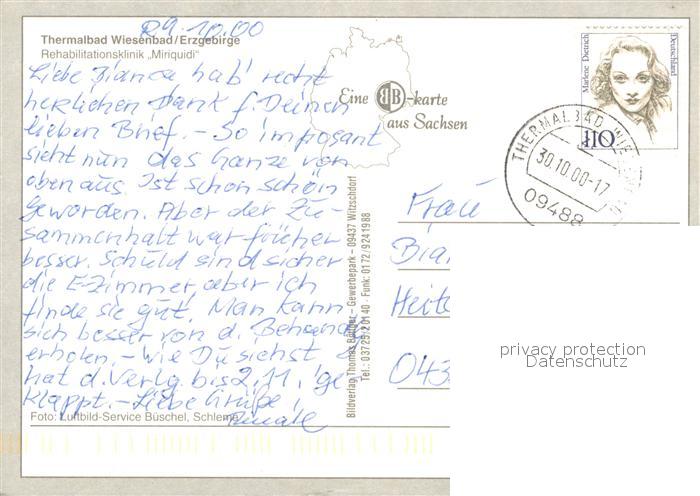 29.10.00
Thermalbad Wiesenbad/Erzgebirge
Rehabilitationsklinik „Miriquidi"
Liebe Bianca hab' recht
herzlichen Dank f. Deinen
lieben Brief. - So imposant
sieht nun das Ganze von
oben aus. Ist schon schön
geworden. Aber der Zu-
sammenhalt war früher
besser. Schuld sind sicher
die E-Zimmer, aber ich
finde sie gut. Man kann
sich besser von d. Behandlg
erholen. - Wie Du siehst
hat d. Verlg. bis 2.11. ge
klappt. - Liebe Grüße!
Renate
Foto: Luftbild-Service Büschel, Schlema
Eine BB-karte
aus Sachsen
Bildverlag Thomas Böttger – Gewerbepark – 09437 Witzschdorf
Tel.: 03725/20140 · Funk: 0172/9241988
Marlene Dietrich
Deutschland
110
THERMALBAD WIESENBAD
30.10.00-17
09488
Frau
Bia
Heite
043
privacy protection
Datenschutz